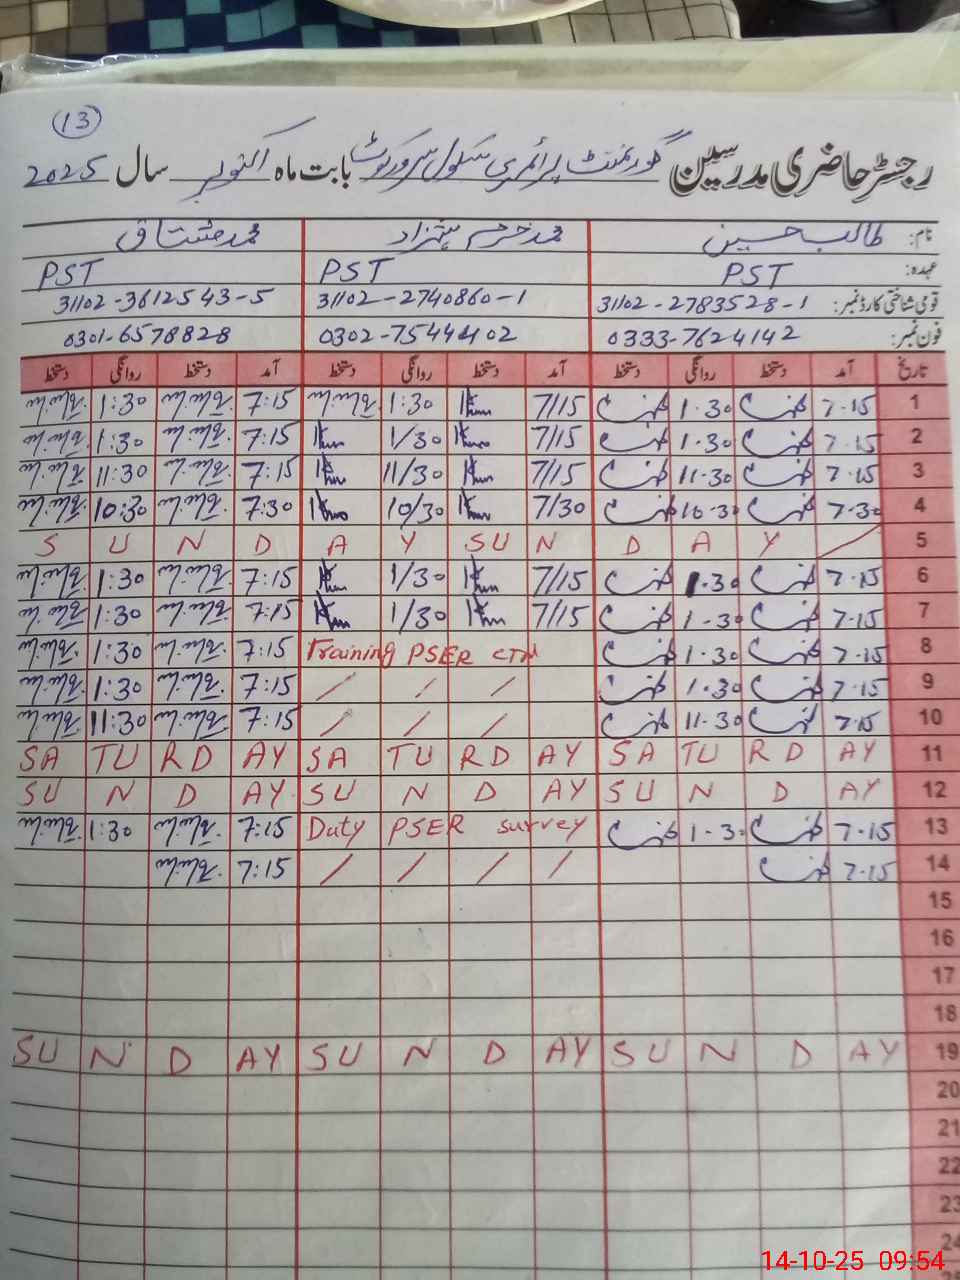 13
رجسٹر حاضری مدرسین گورنمنٹ پرائمری سکول سرورکوٹ بابت ماہ اکتوبر سال 2025
نام: طالب حسین محمد خرم شہزاد محمد مشتاق
عہدہ: PST PST PST
قومی شناختی کارڈ نمبر: 31102-2783528-1 31102-2740860-1 31102-3612543-5
فون نمبر: 0333-7624142 0302-7544402 0301-6578828
تاریخ آمد دستخط روانگی دستخط آمد دستخط روانگی دستخط آمد دستخط روانگی دستخط
1 7-15 1-30 7/15 1:30 7:15 1:30
2 7-15 1-30 7/15 1/30 7:15 1:30
3 7-15 11-30 7/15 11/30 7:15 11:30
4 7-30 10-30 7/30 10/30 7:30 10:30
S U N D A Y SU N D A Y 5
6 7-15 1-30 7/15 1/30 7:15 1:30
7 7-15 1-30 7/15 1/30 7:15 1:30
8 7-15 1-30 Training PSER 7:15 1:30
9 7-15 1-30 / / / 7:15 1:30
10 7-15 11-30 / / / 7:15 11:30
SA TU RD AY SA TU RD AY SA TU RD AY 11
SU N D AY SU N D AY SU N D AY 12
13 7-15 1-30 Duty PSER survey 7:15 1:30
14 7-15 / / / / 7:15
15
16
17
18
SU N D AY SU N D AY SU N D AY 19
20
21
22
23
24
14-10-25 09:54